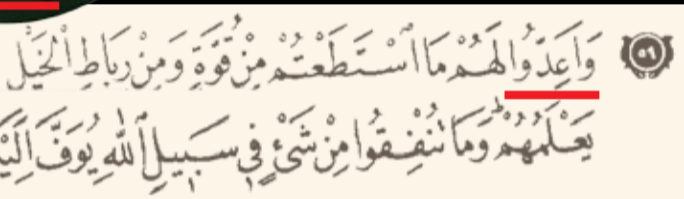 ٥٩ وَاَعِدُّوا لَهُمْ مَا اسْتَطَعْتُمْ مِنْ قُوَّةٍ وَمِنْ رِبَاطِ الْخَيْلِ
يَعْلَمُهُمْۜ وَمَا تُنْفِقُوا مِنْ شَيْءٍ فِي سَبِيلِ اللّٰهِ يُوَفَّ